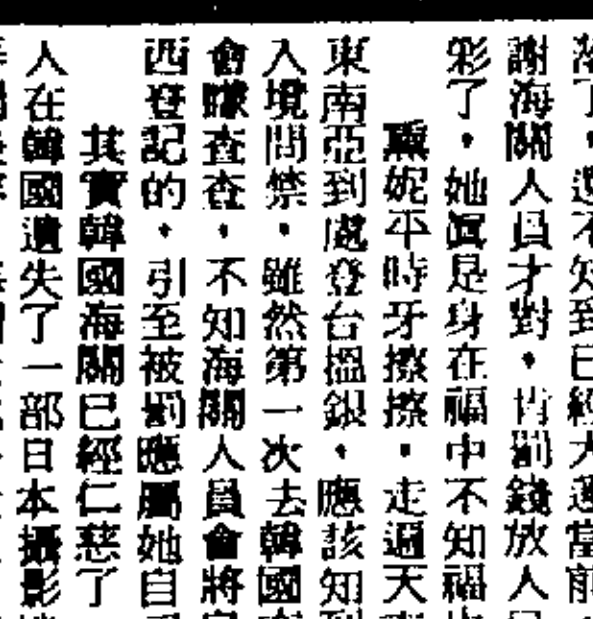 落了，還不知到已經大運當前
謝海關人員才對，肯罰錢放人
彩了，她眞是身在福中不知福
黛妮平時牙擦擦，走過天
東南亞到處登台搵銀，應該知到
入境問禁，雖然第一次去韓國
會矇查查，不知海關人員會將
西登記的，引至被罰應屬她自
其實韓國海關已經仁慈了
人在韓國遺失了一部日本攝影